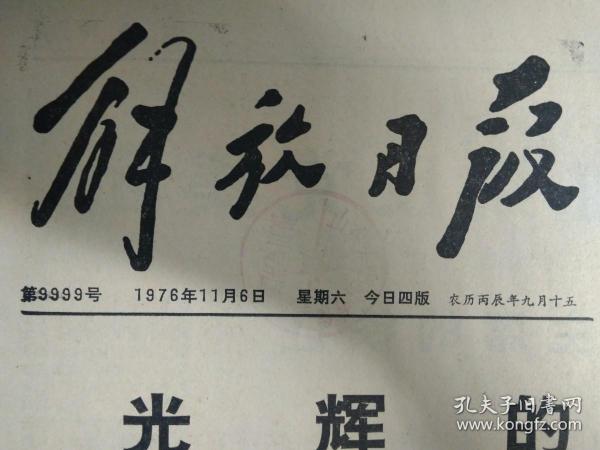 解放日报
第9999号 1976年11月6日 星期六 今日四版 农历丙辰年九月十五
光辉的
孔夫子旧书网
www.kongfz.com